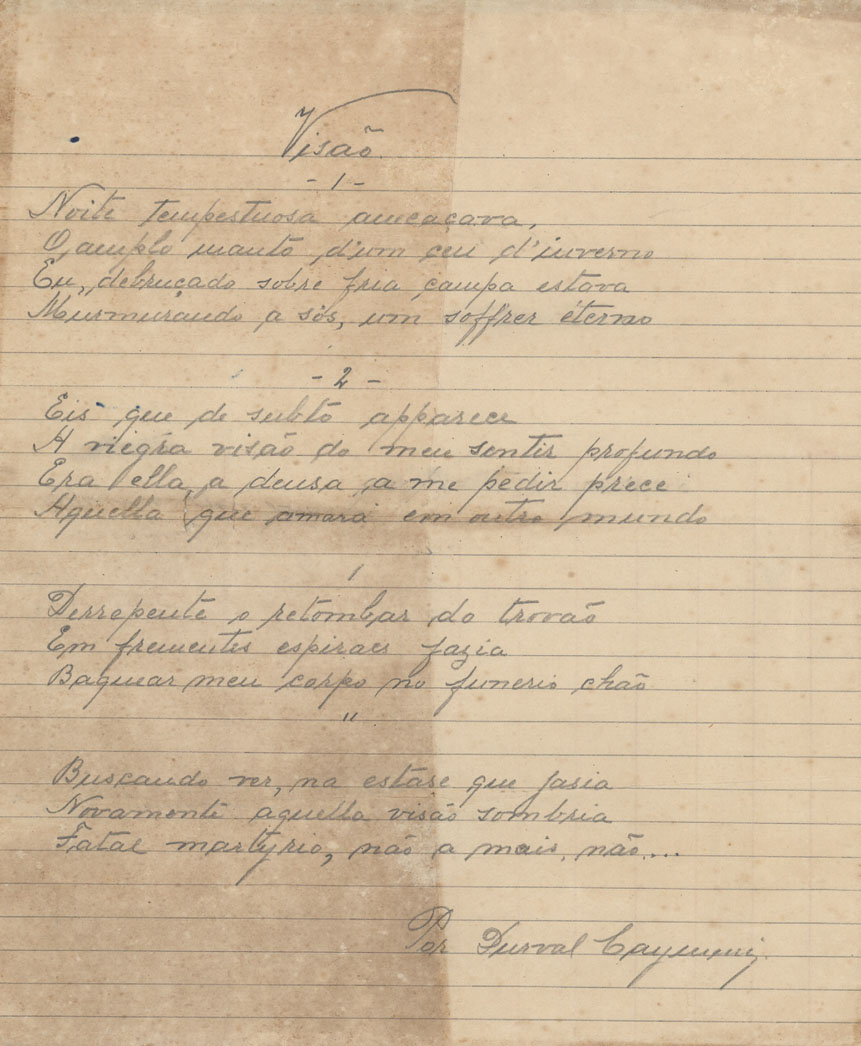 Visão
- 1 -
Noite tempestuosa ameaçava,
O amplo manto d'um ceu d'inverno
Eu, debruçado sobre fria campa estava
Murmurando a sós, um soffrer eterno
- 2 -
Eis que de subto apparece
A negra visão do meu sentir profundo
Era ella, a deusa a me pedir prece
Aquella que amara em outro mundo
/
Derrepente o retombar do trovão
Em frementes espiraes fazia
Baquear meu corpo no funerio chão
"
Buscando ver, na estase que jasia
Novamente aquella visão sombria
Fatal martyrio, não a mais, não....
Por Durval Caymmi.